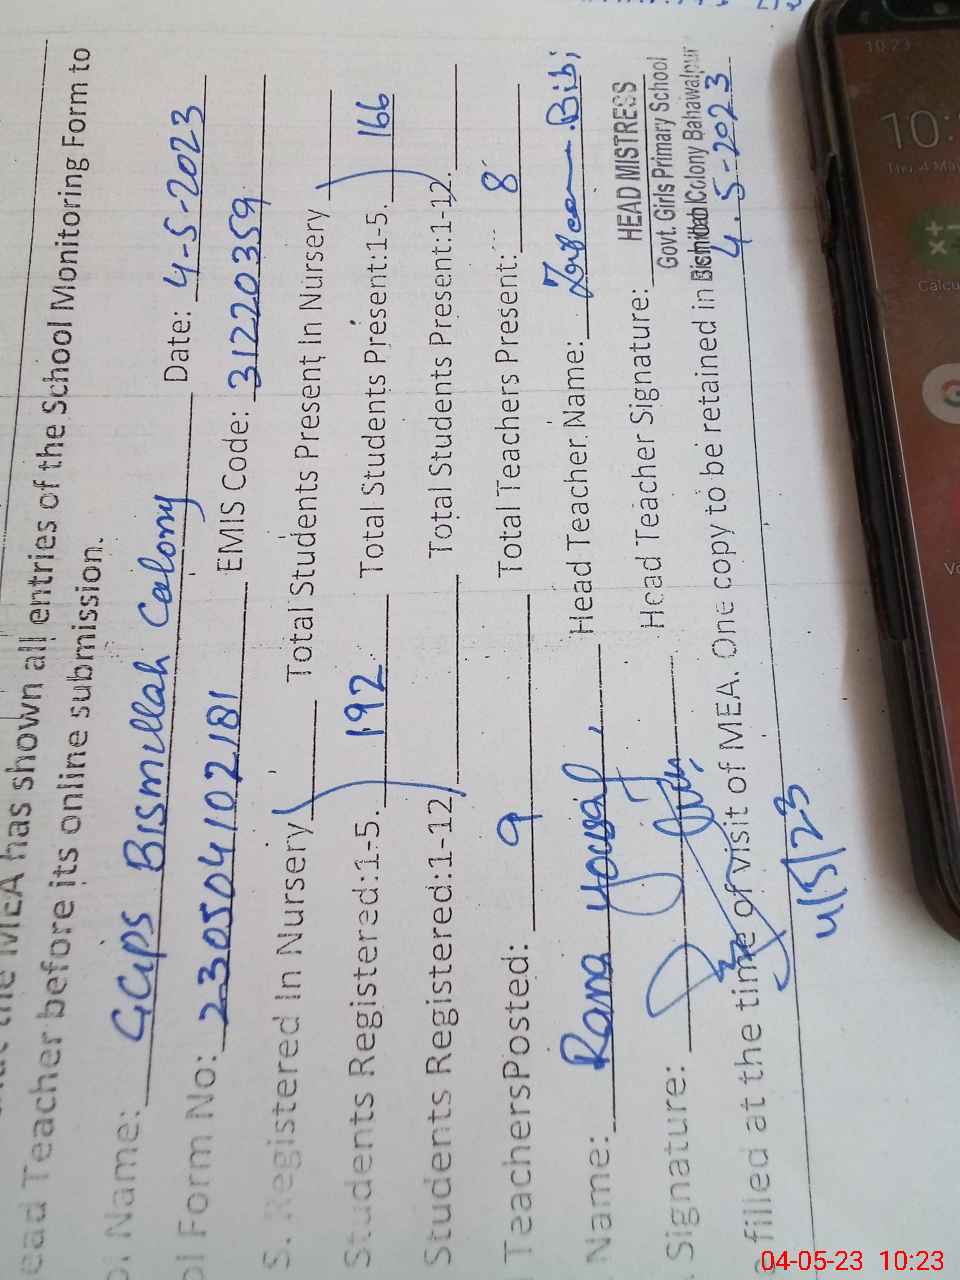 the MEA has shown all entries of the School Monitoring Form to
ead Teacher before its online submission.
Name: GGPS Bismillah Colony Date: 4-5-2023
ol Form No: 230504102181 EMIS Code: 31220359
S. Registered In Nursery Total Students Present In Nursery
Students Registered:1-5. 192 Total Students Present:1-5. 166
Students Registered:1-12 Total Students Present:1-12.
TeachersPosted: 9 Total Teachers Present: 8
Name: Rana yousaf Head Teacher Name: Bibi
Signature: Head Teacher Signature:
HEAD MISTRESS
Govt. Girls Primary School
Colony Bahawalpur
filled at the time of visit of MEA. One copy to be retained in
4.5-2023
4/5/23
10:23
Thu, 4 May
Calcu
04-05-23 10:23